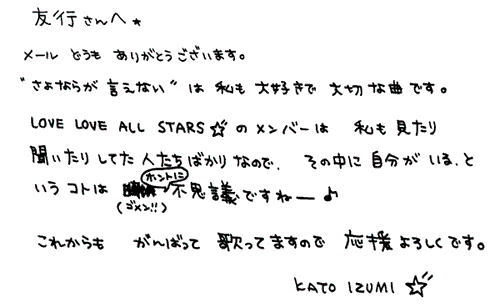 友行さんへ★
メール どうも ありがとうございます。
"さよならが 言えない" は 私も 大好きで 大切 な曲 です。
LOVE LOVE ALL STARS☆ の メンバーは 私も 見たり
聞いたり してた 人たち ばかり なので、 その中に 自分が いる、と
ホントに
いう コトは 不思議ですねー♪
(ゴメン!!)
これからも がんばって 歌ってますので 応援 よろしくです。
KATO IZUMI ☆